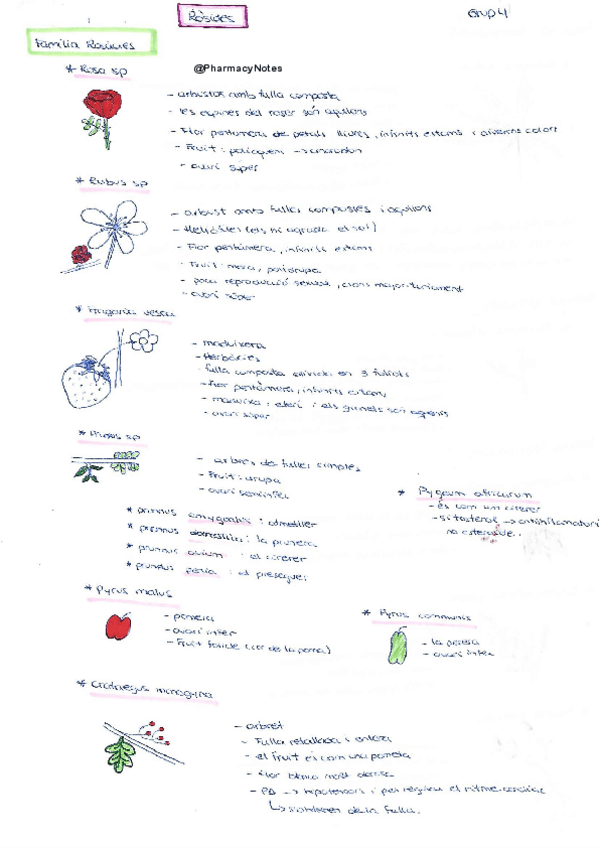 Ròsides
Grup 4
Família Rosàcies
* Rosa sp
@PharmacyNotes
- arbustos amb fulla composta
- les espines del roser són agullons
- Flor pentàmera de pètals lliures, infinits estams i diversos colors
- Fruit: poliaqueni → cinorrodon
- ovari súper
* Rubus sp
- arbust amb fulles compostes i agullons
- Heliòfiles (els hi agrada el sol)
- Flor pentàmera, infinits estams
- Fruit: mora, polidrupa
- poca reproducció sexual, clons majoritàriament
- ovari súper
* Fragaria vesca
- maduixera
- Herbàcies
- fulla composta dividida en 3 folíols
- Flor pentàmera, infinits estams
- maduixa: eteri i els granets són aquenis
- ovari súper
* Prunus sp
- arbres de fulles simples
- Fruit: drupa
- ovari semiínfer
* prunnus amygdalus: ametller
* prunnus domestica: la prunera
* prunnus avium: el cirerer
* prunnus persica: el presseguer
* Pygeum africanum
- és com un cirerer
- sitosterol → antiinflamatori
no esteroide..
* Pyrus malus
- pomera
- ovari ínfer
- Fruit folicle (cor de la poma)
* Pyrus communis
- la perera
- ovari ínfer
* Crataegus monogyna
- arbret
- Fulla retallada i entera
- el fruit és com una pometa
- Flor blanca molt
- PA → hipotensors i per regular el ritme cardíac
↳ de la fulla.